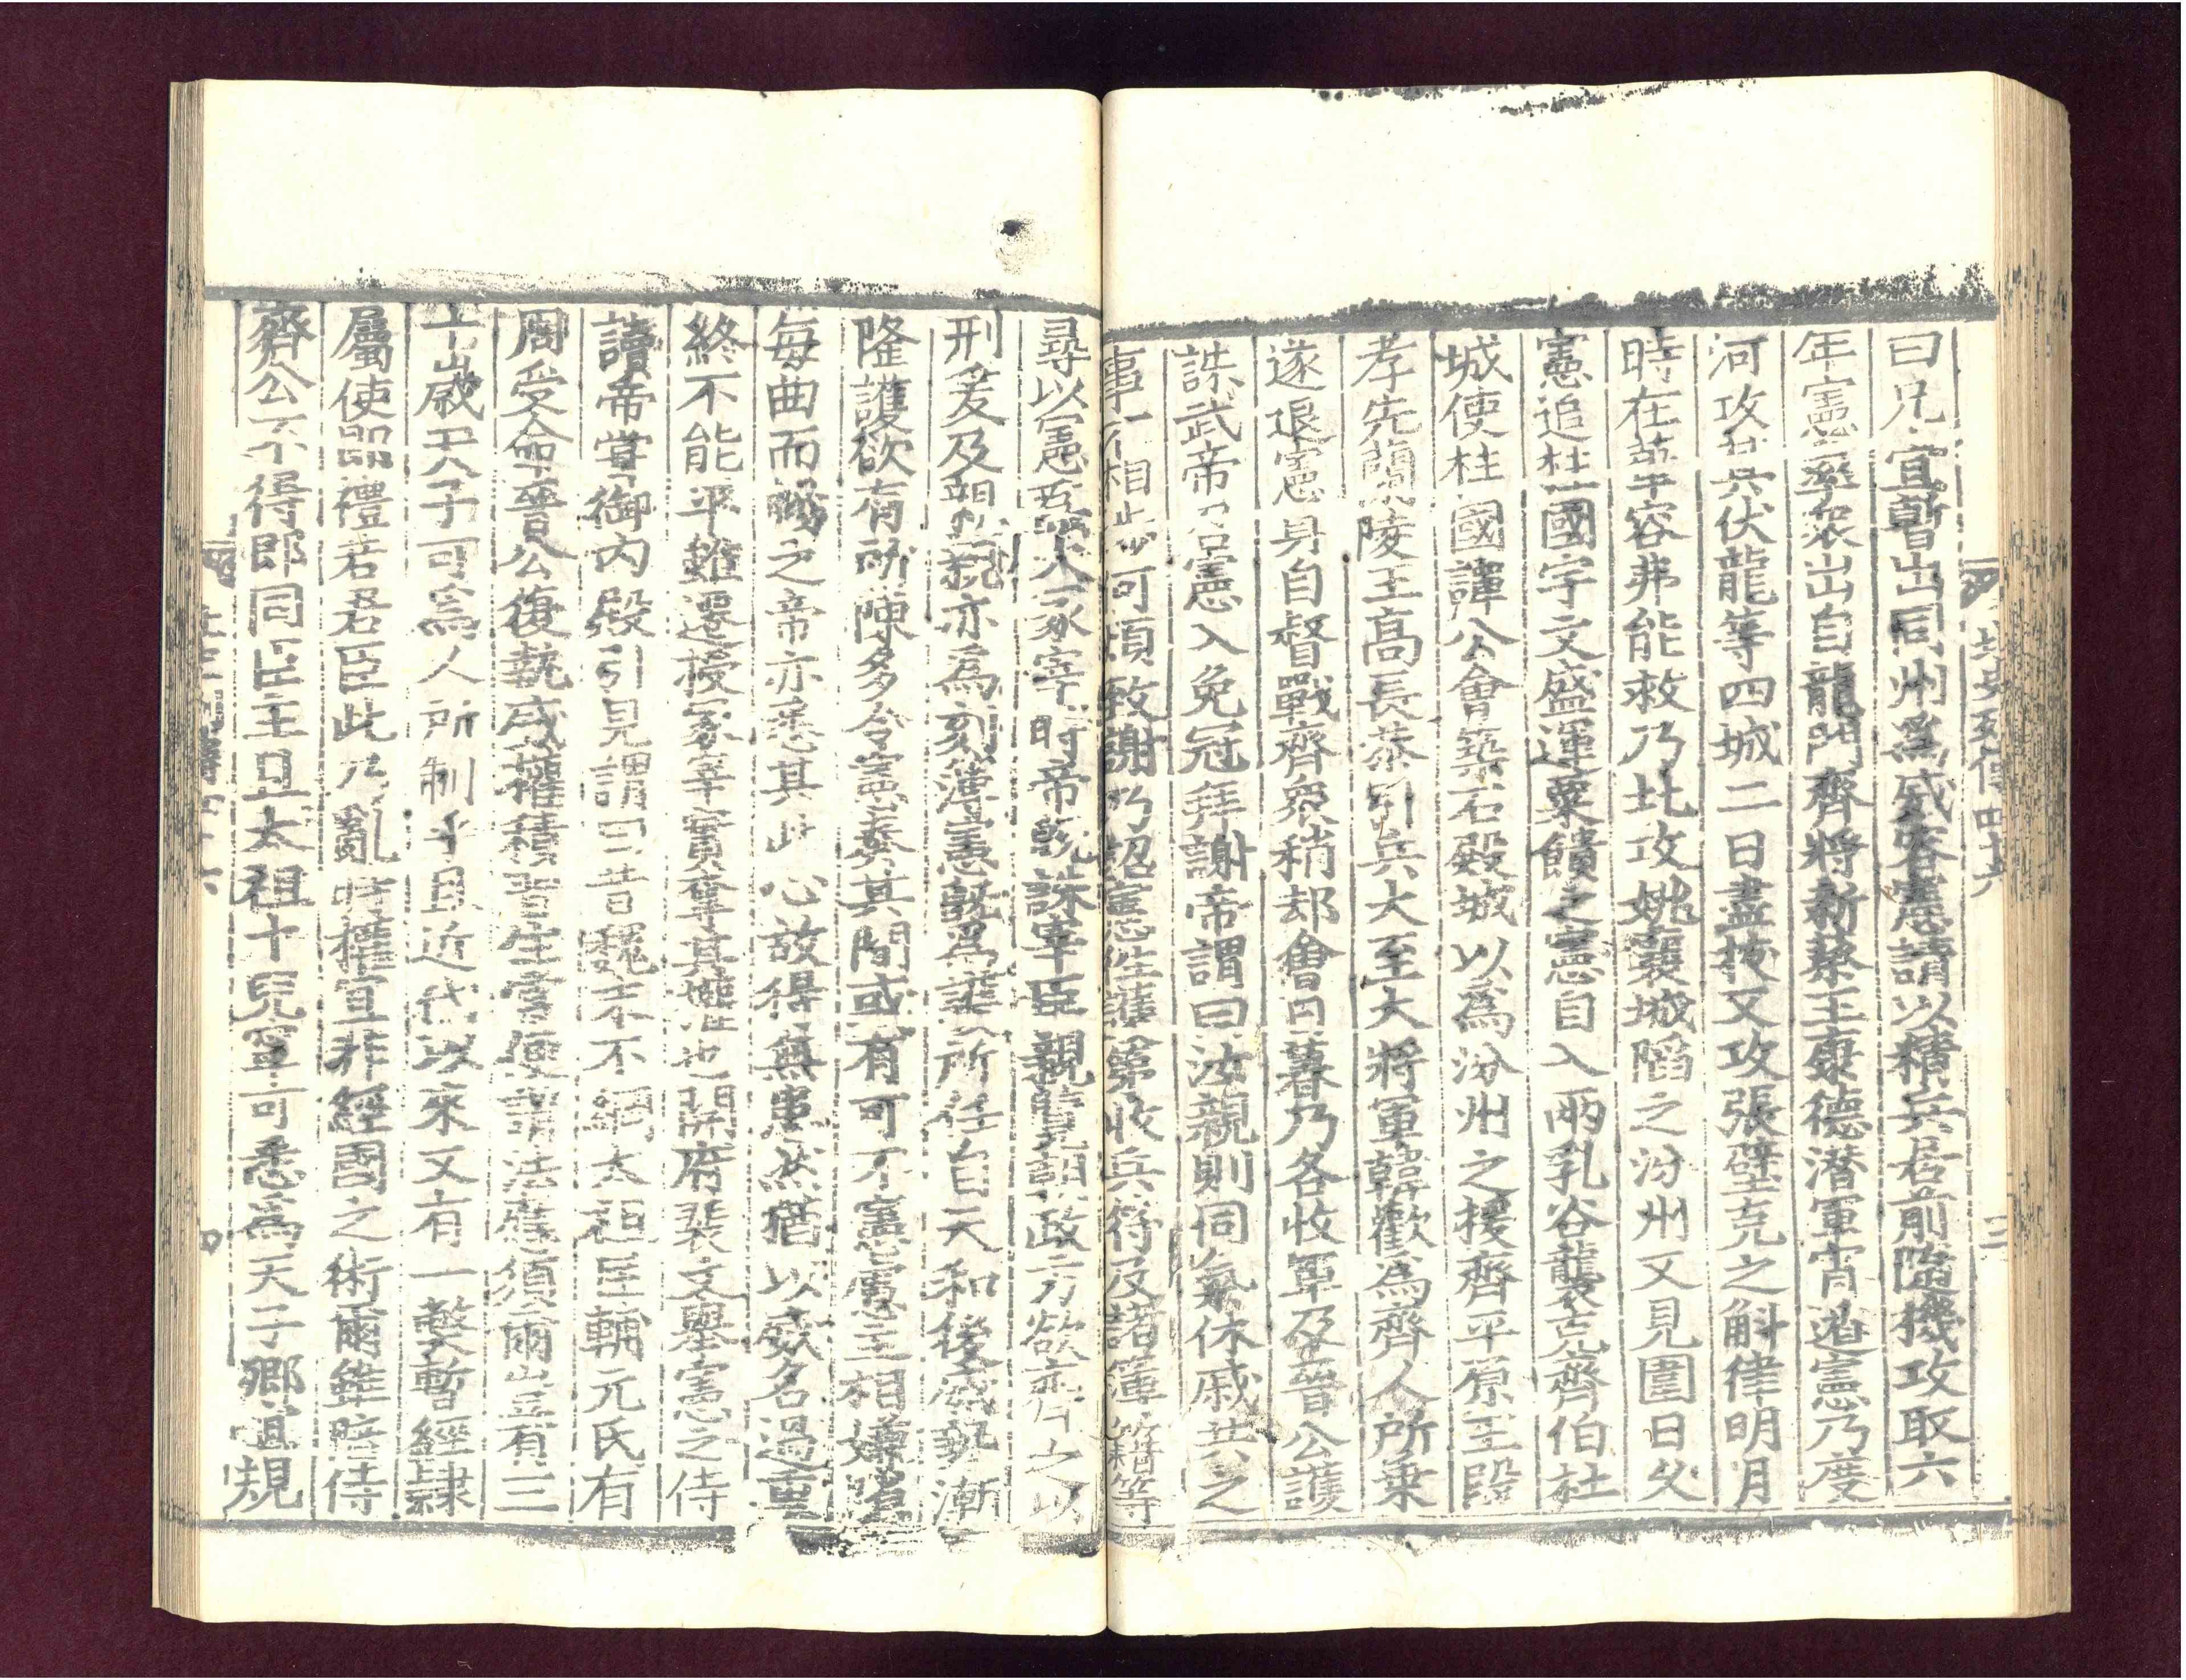 曰兄宜暫出同州爲威容憲請以精兵居前隨機攻取六
年憲率衆出自龍門齊將新蔡王康德潜軍宵遁憲乃度
河攻其伏龍等四城二日盡拔又攻張壁克之斛律明月
時在華谷弗能救乃北攻姚襄城陷之汾州又見圍日久
憲追柱國宇文盛運粟饋之憲自入兩乳谷襲克齊伯杜
城使柱國譚公會築石殿城以爲汾州之援齊平原王段
孝先蘭陵王高長恭引兵大至大將軍韓歡爲齊人所乗
遂退憲身自督戰齊衆稍却會日暮乃各收軍及晉公護
誅武帝召憲入免冠拜謝帝謂曰汝親則同氣休戚共之
事不相涉何煩致謝乃詔憲往護第收兵符及諸簿籍等
尋以憲爲大冢宰時帝旣誅宰臣親覽朝政方欲齊之以
刑爰及親亦爲刻薄憲旣爲護所任自天和後威勢漸
隆護欲有所陳多令憲奏其間或有可不憲慮主相嫌隙
每曲而暢之帝亦悉其此心故得無患然猶以威名過重
終不能平雖遷授冢宰實奪其權也開府裴文舉憲之侍
讀帝嘗御内殿引見謂曰昔魏末不綱太祖匡輔元氏有
周受命晉公復執威權積習生常便謂法應須爾豈有三
十歳天子可爲人所制乎且近代以來又有一弊暫經隷
屬使即禮若君臣此乃亂時權宜非經國之術爾雖陪侍
齊公不得即同臣主且太祖十兒寧可悉爲天子卿宜規
北史列傳四十六
三